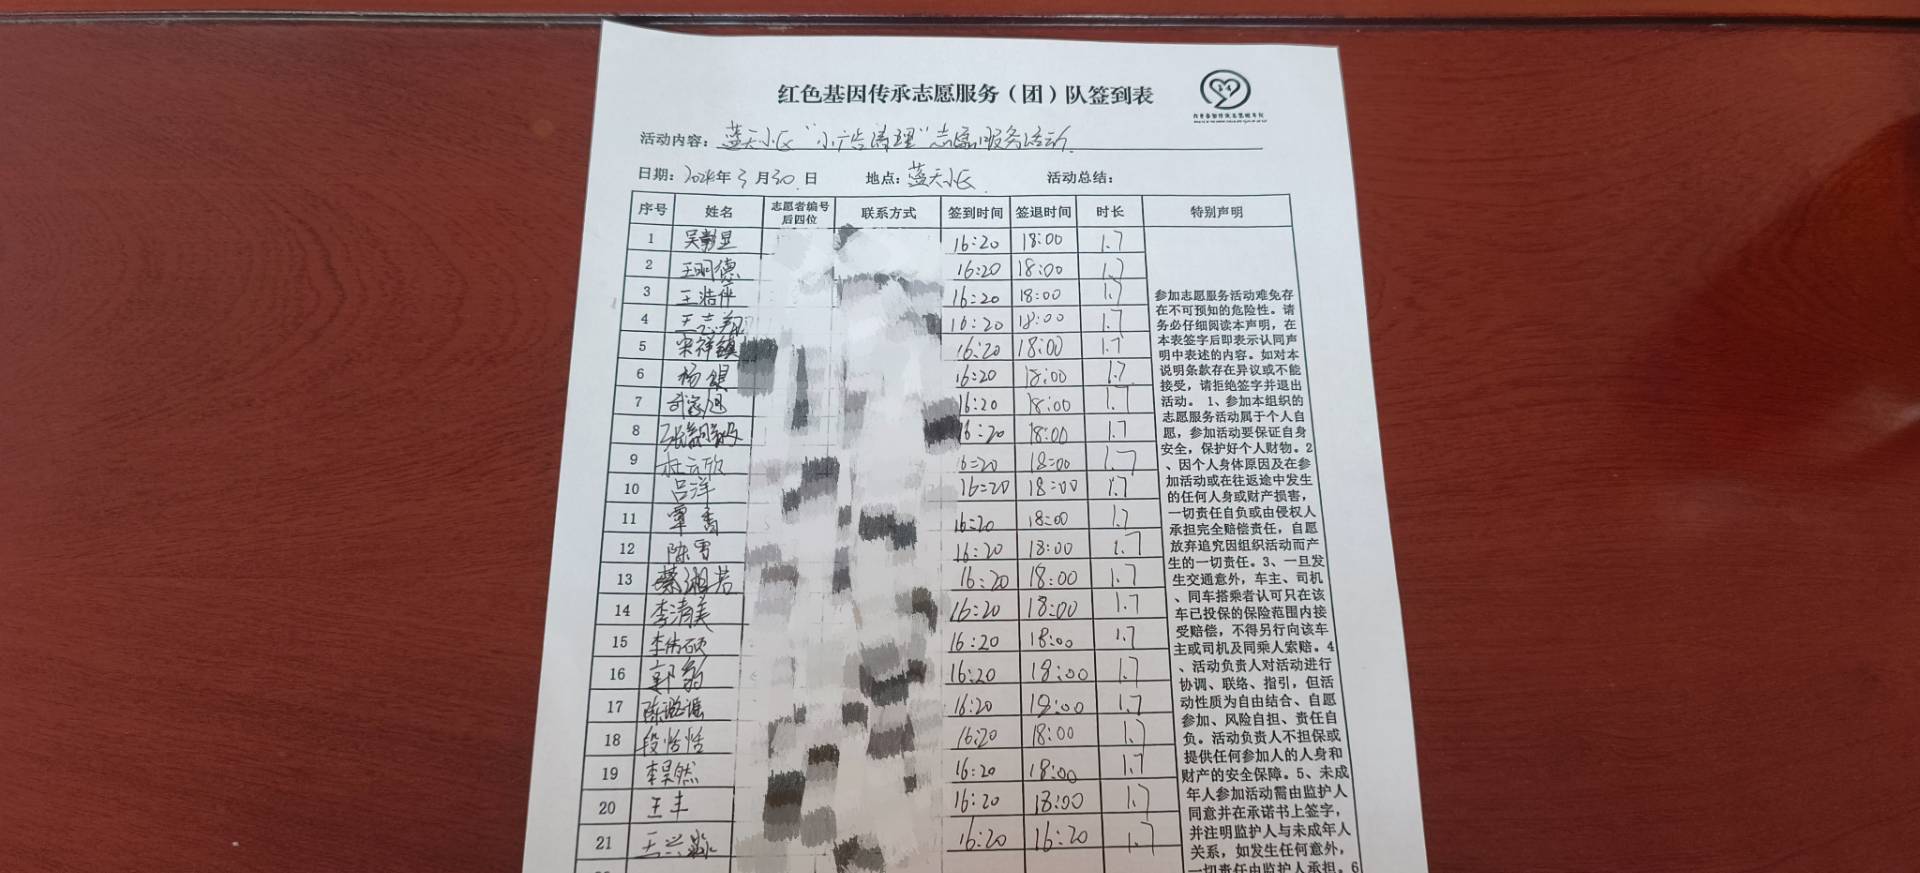 红色基因传承志愿服务（团）队签到表
活动内容：蓝天小区“小广告清理”志愿服务活动
日期：2024年3月30日 地点：蓝天小区 活动总结：
序号 姓名 志愿者编号后四位 联系方式 签到时间 签退时间 时长 特别声明
1 吴彰显 16:20 18:00 1.7
2 王明德 16:20 18:00 1.7
3 王浩伻 16:20 18:00 1.7
4 王志翔 16:20 18:00 1.7
5 宋祥镇 16:20 18:00 1.7
6 杨锟 16:20 18:00 1.7
7 16:20 18:00 1.7
8 16:20 18:00 1.7
9 杜云欣 16:20 18:00 1.7
10 吕洋 16:20 18:00 1.7
11 覃香 16:20 18:00 1.7
12 陈雪 16:20 18:00 1.7
13 蔡湘若 16:20 18:00 1.7
14 李清美 16:20 18:00 1.7
15 李伟硕 16:20 18:00 1.7
16 16:20 18:00 1.7
17 16:20 18:00 1.7
18 段恬恬 16:20 18:00 1.7
19 李昊然 16:20 18:00 1.7
20 王丰 16:20 18:00 1.7
21 王兴淼 16:20 16:20 1.7
参加志愿服务活动难免存
在不可预知的危险性。请
务必仔细阅读本声明，在
本表签字后即表示认同声
明中表述的内容。如对本
说明条款存在异议或不能
接受，请拒绝签字并退出
活动。 1、参加本组织的
志愿服务活动属于个人自
愿，参加活动要保证自身
安全，保护好个人财物。2
、因个人身体原因及在参
加活动或在往返途中发生
的任何人身或财产损害，
一切责任自负或由侵权人
承担完全赔偿责任，自愿
放弃追究因组织活动而产
生的一切责任。3、一旦发
生交通意外，车主、司机
、同车搭乘者认可只在该
车已投保的保险范围内接
受赔偿，不得另行向该车
主或司机及同乘人索赔。4
、活动负责人对活动进行
协调、联络、指引，但活
动性质为自由结合、自愿
参加、风险自担、责任自
负。活动负责人不担保或
提供任何参加人的人身和
财产的安全保障。5、未成
年人参加活动需由监护人
同意并在承诺书上签字，
并注明监护人与未成年人
关系，如发生任何意外，
一切责任由监护人承担。6